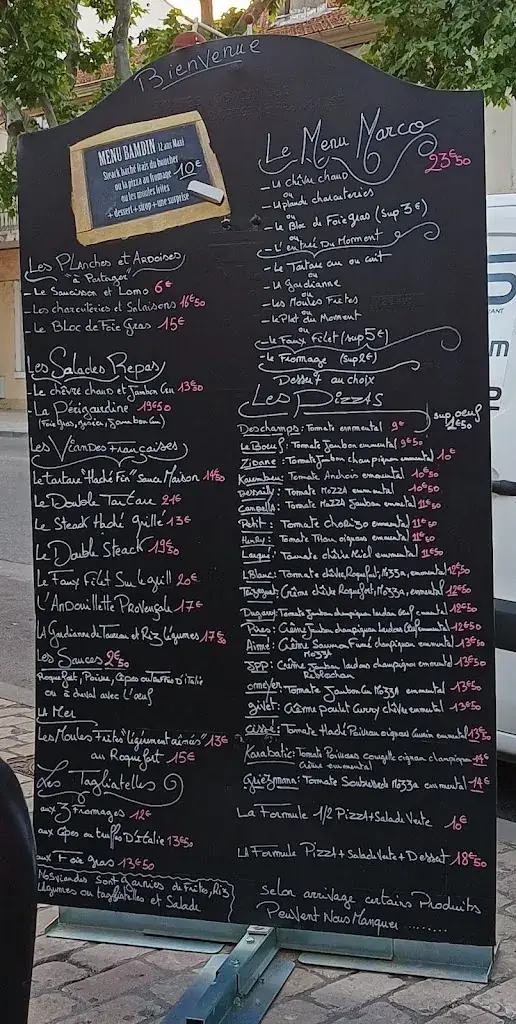 Bienvenue
MENU BAMBIN 12 ans Maxi
Steack haché frais du boucher
ou la pizza au fromage 10€
ou les moules frites
+ dessert + sirop + une surprise
Les PLanches et Ardoises
"à Partager"
- Le Saucisson et Lomo 6€
- Les charcuteries et Salaisons 16€50
- Le Bloc de Foie Gras 15€
Les Salades Repas
- Le chèvre chaud et Jambon Cru 13€50
- La Périgourdine 19€50
(Foie gras, gésier, Jambon Cru)
Les Viandes Françaises
Le tartare "Haché Frais" Sauce Maison 14€50
Le Double Tartare 21€
Le Steack Haché grillé 13€
Le Double Steack 19€50
Le Faux Filet Sur le grill 20€
L'Andouillette Provençale 17€
LA Gardianne de Taureau et Riz Légumes 17€50
Les Sauces 2€50
Roquefort, Poivre, Cèpes ou truffes D'italie
ou à cheval avec L'oeuf
LA Mer
Les Moules Frites "légèrement aérées" 13€
au Roquefort 15€
Les Tagliatelles
aux 3 Fromages 12€
aux Cèpes ou truffes D'Italie 13€50
aux Foie gras 13€50
Nos viandes Sont garnies de Frites, Riz
Légumes ou tagliatelles et Salade
Le Menu Marco
23€50
- Le chèvre chaud
ou
- LA planche charcuteries
ou
- Le Bloc de Foie Gras (Sup 3€)
ou
- L'entrée Du Moment
- Le Tartare cru ou cuit
ou
- LA gardianne
ou
- Les Moules Frites
- Le Plat du Moment
ou
- Le Faux Filet (sup 5€)
- Le Fromage (sup 2€)
Dessert au choix
Les Pizzas
sup oeuf 1€50
Deschamps: Tomate emmental 9€
Le Boeuf: Tomate Jambon emmental 9€50
Zidane: Tomate Jambon champignon emmental 10€
Karembeu: Tomate Anchois emmental 10€50
Dessailly: Tomate Mozza emmental 10€50
Campello: Tomate Mozza Jambon emmental 11€50
Petit: Tomate chorizo emmental 11€50
Henry: Tomate Thon oignons emmental 11€50
Larqué: Tomate chèvre Miel emmental 11€50
L.Blanc: Tomate chèvre, Roquefort, Mozza, emmental 12€50
Trezeguet: Crème chèvre Roquefort, Mozza, emmental 12€50
Dugarry: Tomate Jambon champignon lardons Oeuf emmental 12€50
Pires: Crème Jambon champignon lardons Oeuf emmental 12€50
Aimé: Crème Saumon Fumé champignon emmental 13€50
Mozza
JPP: Crème Jambon lardons champignon emmental 13€50
Reblochon
omeyer: Tomate Jambon Cru Mozza emmental 13€50
givet: Crème poulet Curry chèvre emmental 13€50
cissé: Tomate Haché Poivron oignons Cumin emmental 13€50
Karabatic: Tomate Poivrons courgette oignon champignon 14€
Crème emmental
Griezmann: Tomate Soubressade Mozza emmental 14€
La Formule 1/2 Pizza + Salade Verte 10€
LA Formule Pizza + Salade Verte + Dessert 18€50
Selon arrivage certains Produits
Peuvent Nous Manquer ........